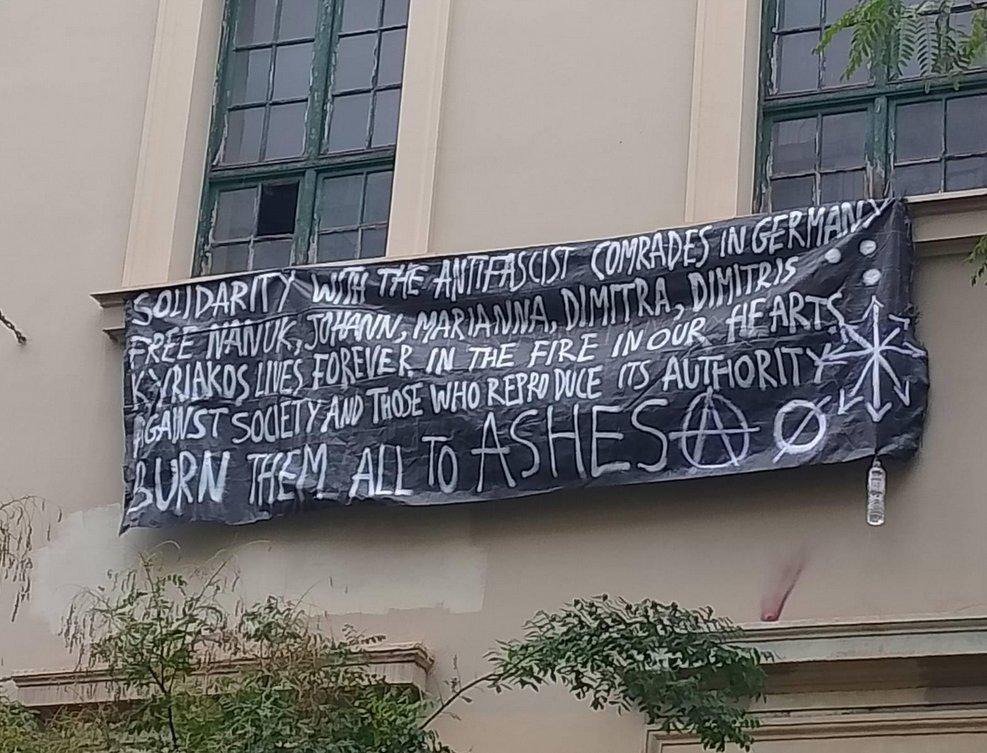 SOLIDARITY WITH THE ANTIFASCIST COMRADES IN GERMANY
FREE NANUK, JOHANN, MARIANNA, DIMITRA, DIMITRIS
KYRIAKOS LIVES FOREVER IN THE FIRE IN OUR HEARTS
AGAINST SOCIETY AND THOSE WHO REPRODUCE ITS AUTHORITY
BURN THEM ALL TO ASHES